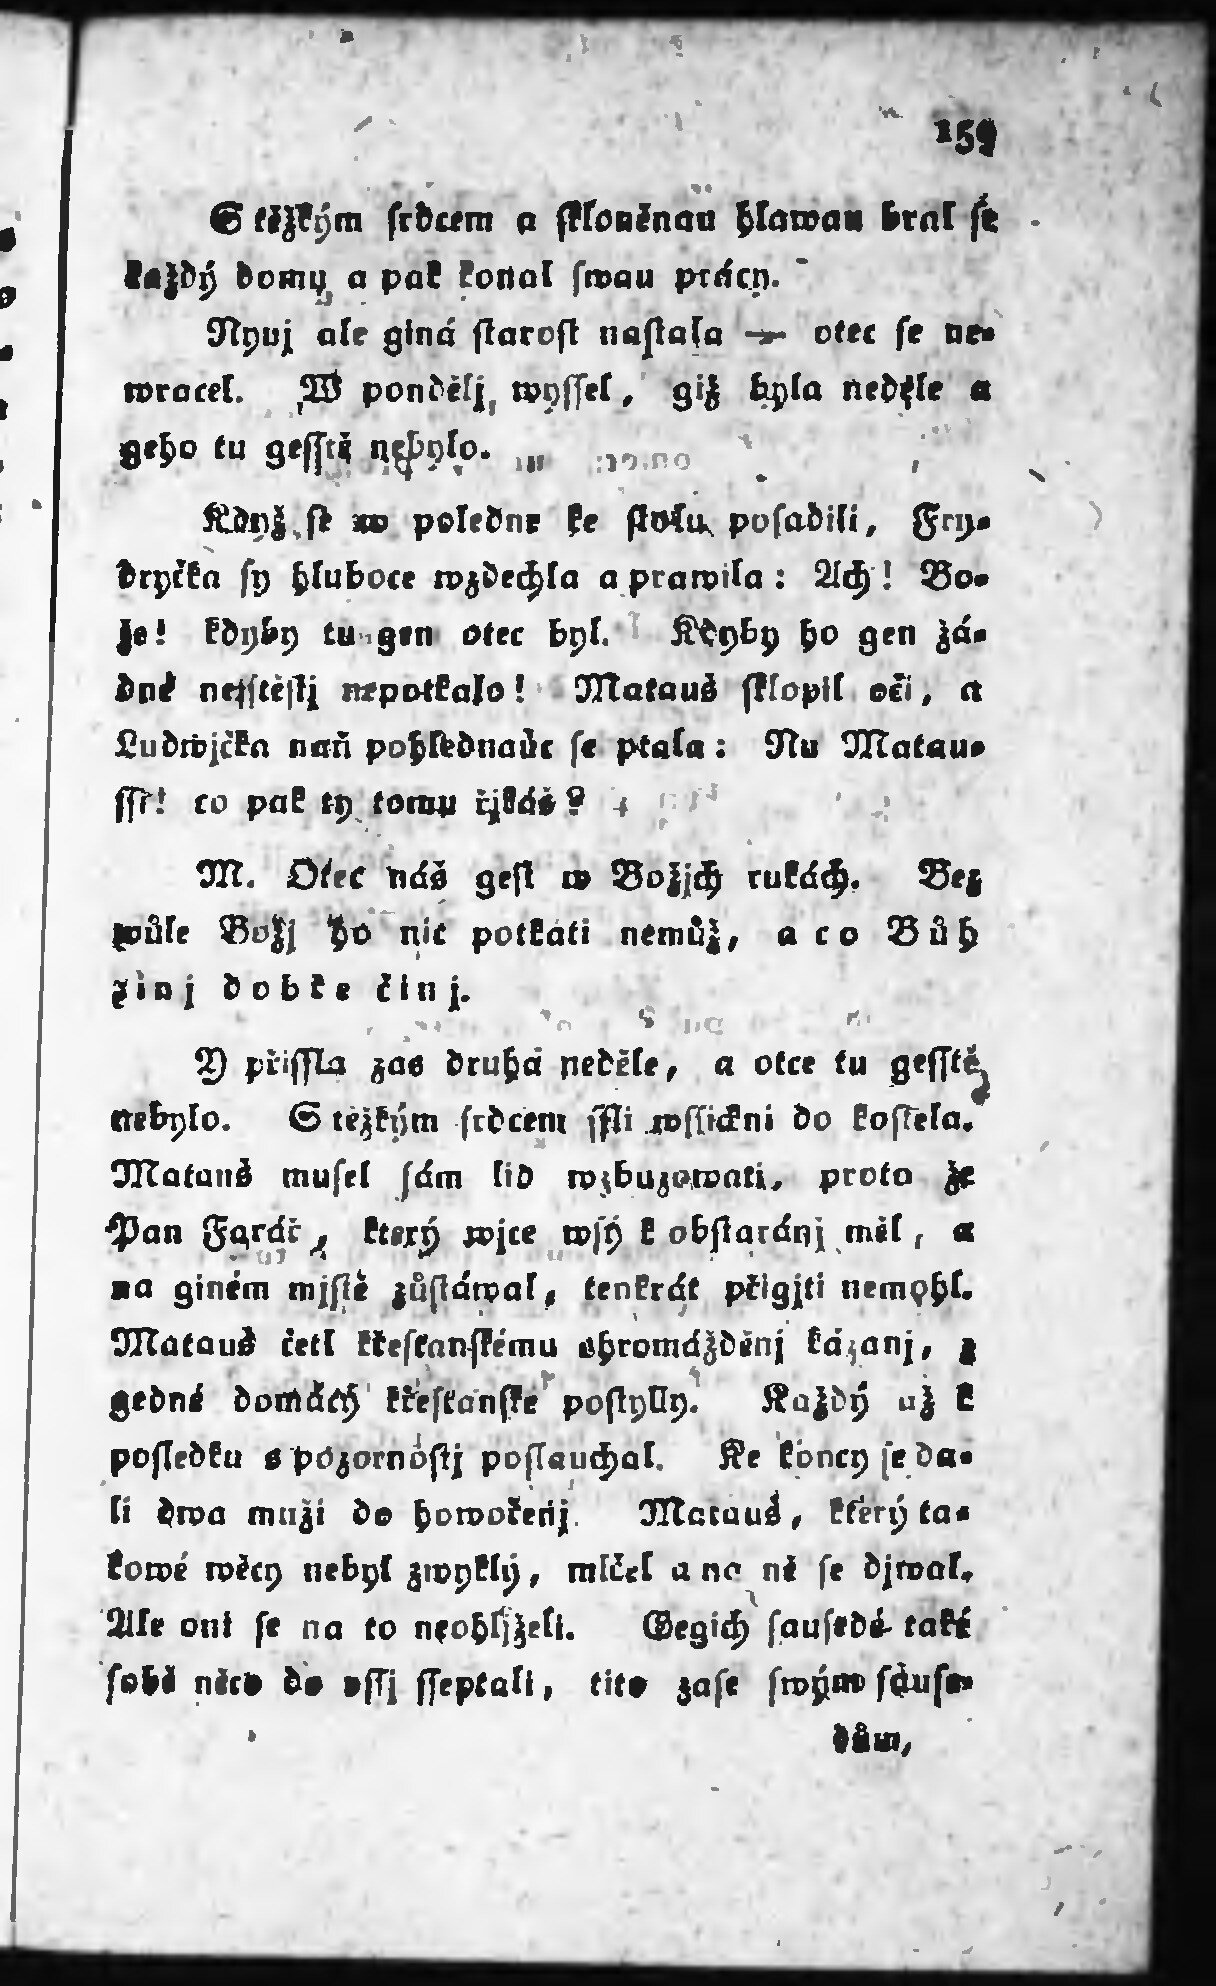 159
S těžkým ſrdcem a ſkloněnau hlawau bral ſe
každý domu a pak konal ſwau prácy.
Nynj ale giná ſtaroſt naſtala — otec ſe ne-
wracel. W pondělj wyſſel, giž byla neděle a
geho tu geſſtě nebylo.
Když ſe w poledne ke ſtolu poſadili, Fry-
dryčka ſy hluboce wzdechla a prawila: Ach! Bo-
že! kdyby tu gen otec byl. Kdyby ho gen žá-
dné neſſtěſtj nepotkalo! Matauš ſklopil oči, a
Ludwjčka naň pohlednauc ſe ptala: Nu Matau-
ſſi! co pak ty tomu řjkáš?
M. Otec náš geſt w Božjch rukách. Bez
wůle Božj ho nic potkati nemůž, a co Bůh
činj dobře činj.
Y přiſſla zas druhá neděle, a otce tu geſſtě
nebylo. S těžkým ſrdcem ſſli wſſickni do koſtela.
Matauš muſel ſám lid wzbuzowati, proto že
Pan Farář, který wjce wſý k obſtaránj měl, a
na giném mjſtě zůſtáwal, tenkrát přigjti nemohl.
Matauš četl křeſťanſkému ſhromážděnj kázanj, z
gedné domácý křeſťanſké poſtylly. Každý až k
poſledku s pozornoſtj poſlauchal. Ke koncy ſe da-
li dwa muži do howořenj. Matauš, který ta-
kowé wěcy nebyl zwyklý, mlčel a na ně ſe djwal.
Ale oni ſe na to neohljželi. Gegich ſauſedé také
ſobě něco do uſſj ſſeptali, tito zaſe ſwým ſauſe-
dům,